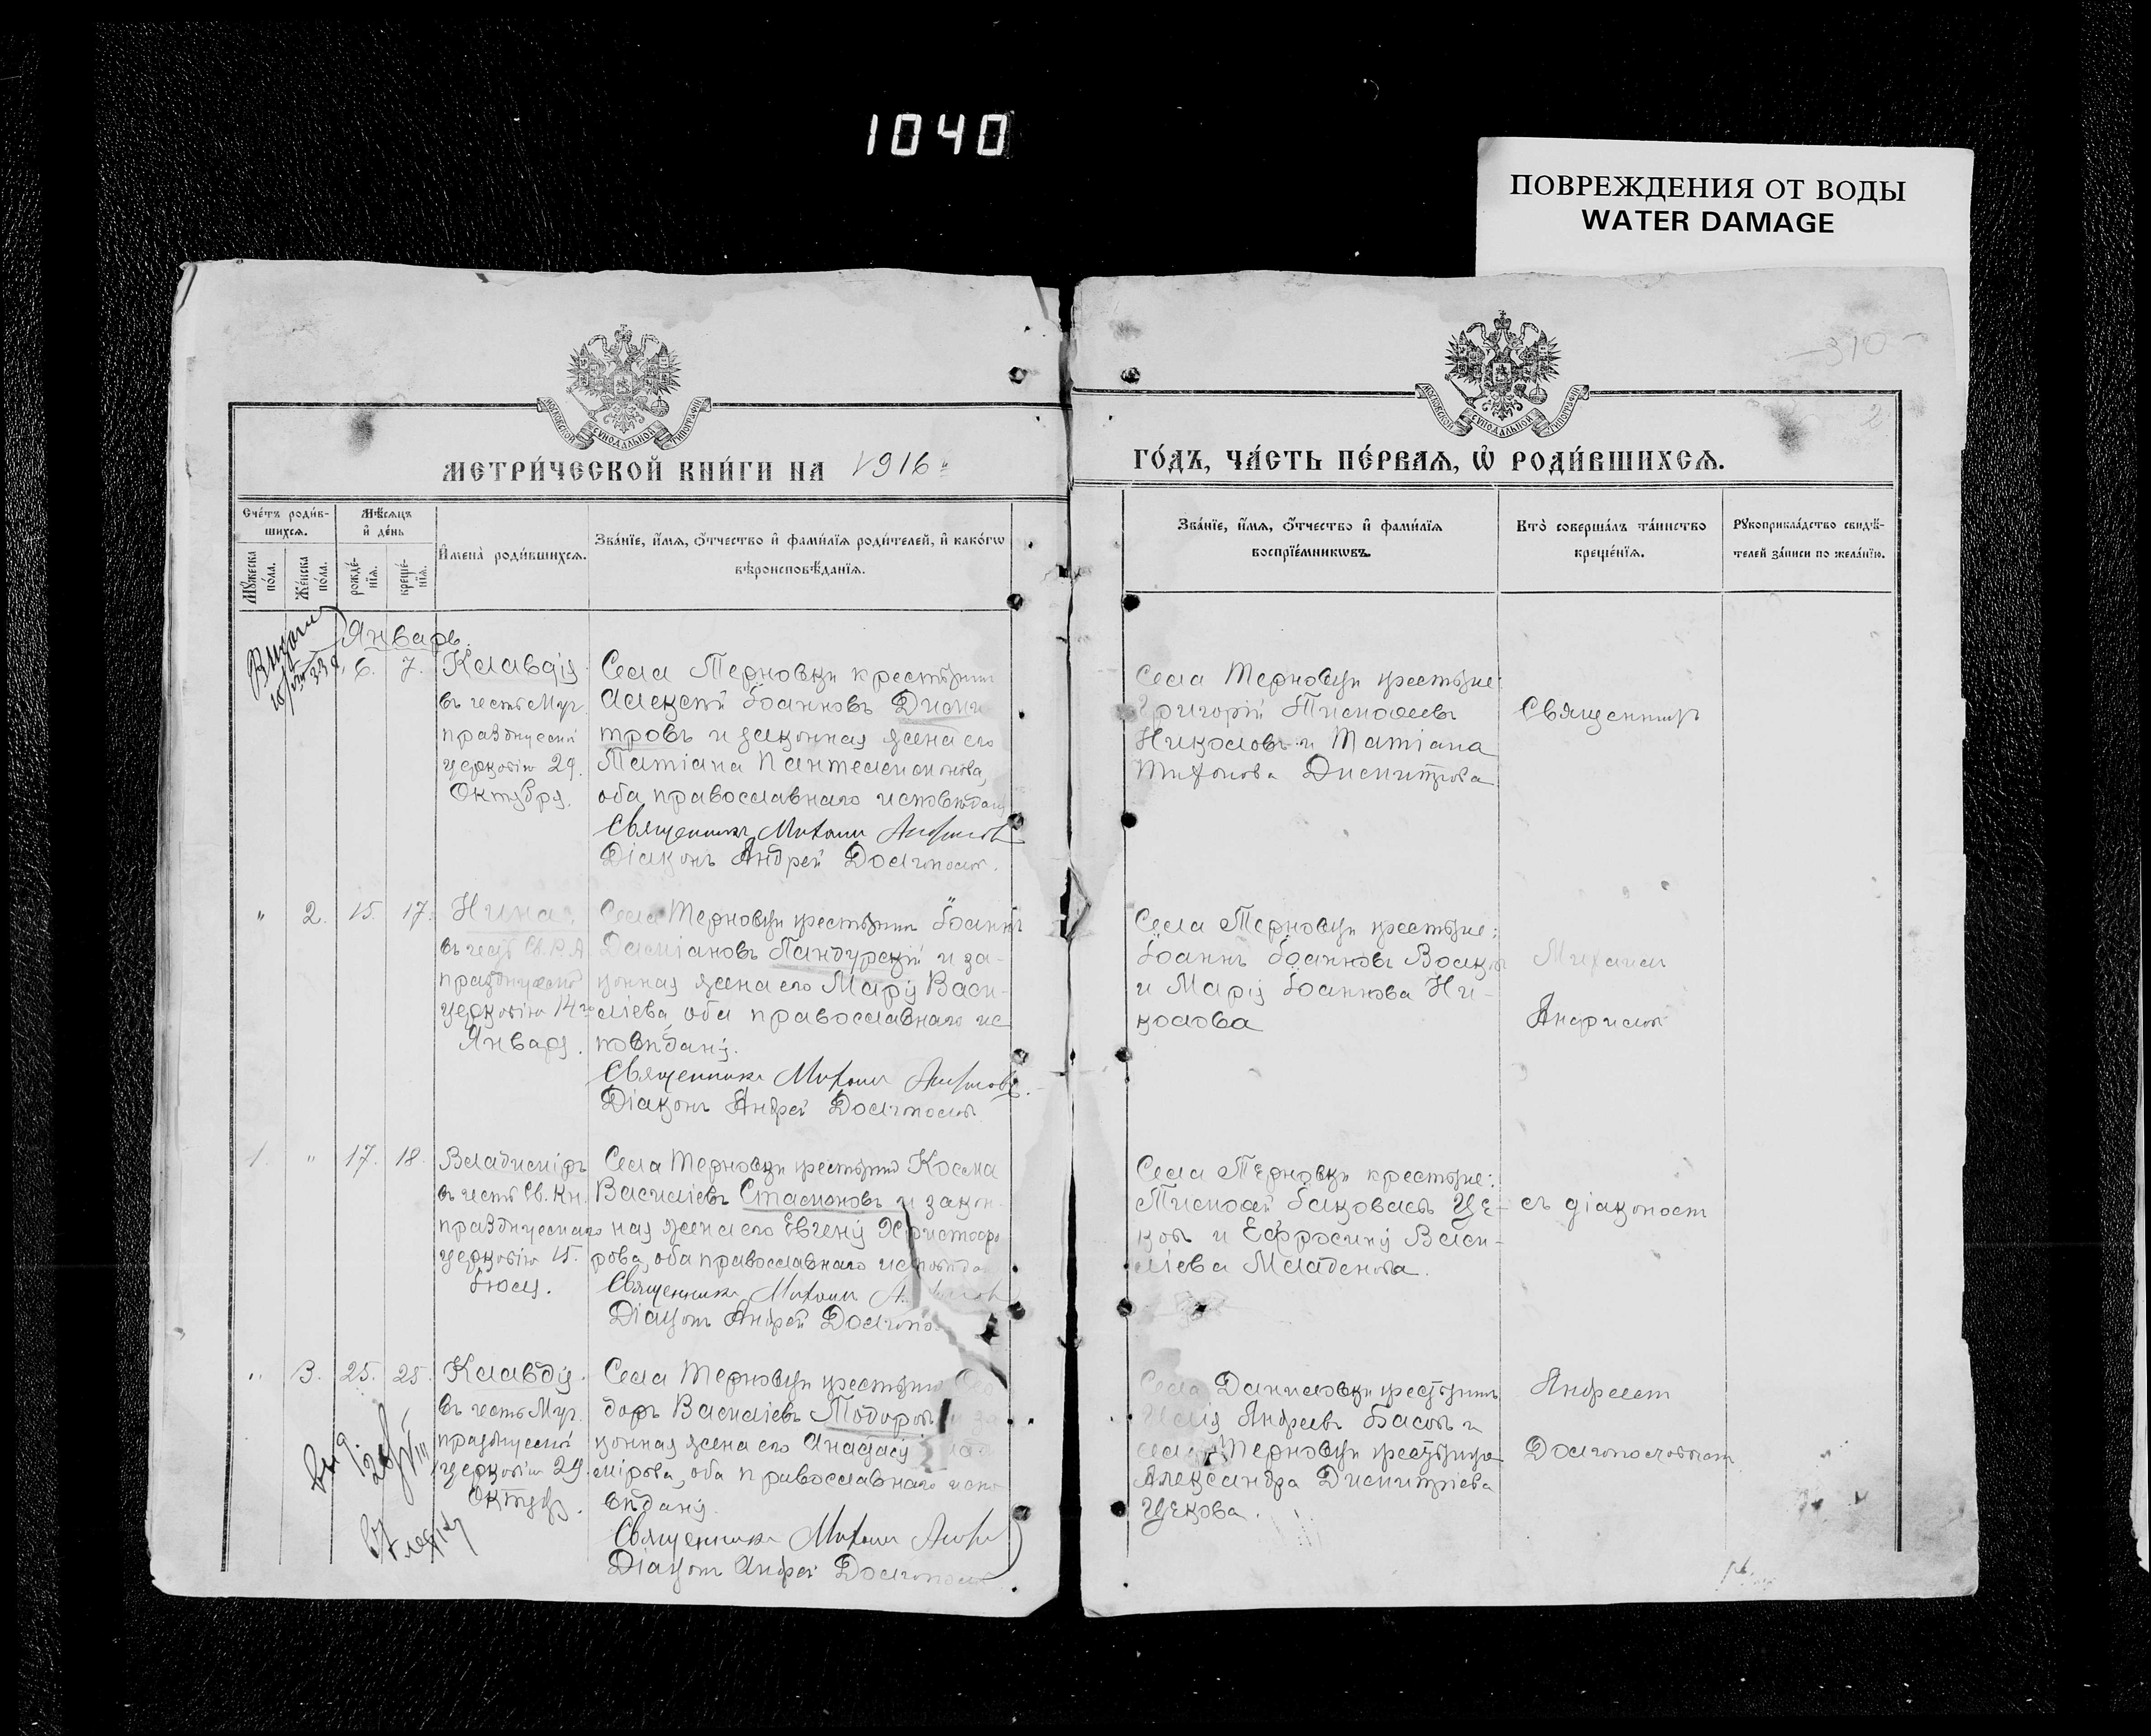 1040
ПОВРЕЖДЕНИЯ ОТ ВОДЫ
WATER DAMAGE
310
2
МОСКОВСКОЙ СѴНОДАЛЬНОЙ ТИПОГРАФІИ
МОСКОВСКОЙ СѴНОДАЛЬНОЙ ТИПОГРАФІИ
МЕТРИ́ЧЕСКОЙ КНИ́ГИ НА 1916 й
ГО́ДЪ, ЧА́СТЬ ПЕ́РВАѦ, Ѽ РОДИ́ВШИХСѦ.
Сче́тъ роди́вшихсѧ.
Мꙋ́жеска по́ла.
Же́нска по́ла.
Мѣ́сѧцъ и҆ де́нь
рожде́нїѧ.
креще́нїѧ.
И҆мена̀ роди́вшихсѧ.
Зва́нїе, и҆́мѧ, ѻ҆́тчество и҆ фами́лїѧ роди́телей, и҆ како́гѡ
вѣроисповѣ́данїѧ.
Зва́нїе, и҆́мѧ, ѻ҆́тчество и҆ фами́лїѧ
воспрїе́мникѡвъ.
Кто̀ соверша́лъ та́инство
креще́нїѧ.
Рꙋкоприкла́дство свидѣ́-
телей за́писи по жела́нїю.
Январь.
6. 7. Клавдія
въ честь Муч.
празднуемой
церковію 29.
Октября.
Села Терновки крестьянин
Алексѣй Іоанновъ Дими
тровъ и законная жена его
Татіана Пантелеимонова,
оба православнаго исповѣдан
Священникъ Михаилъ
Діаконъ Андрей Долгополов.
Села Терновки крестьяне:
Григорій Тимофеевъ
Николовъ и Татіана
Тихонова Димитрова
Священникъ
" 2. 15. 17. Нина,
въ честь Св. Р. А.
празднуемой
церковію 14го
Января.
Села Терновки крестьянин Іоаннъ
Даміановъ Пандурскій и за-
конная жена его Марія Васи-
ліева оба православнаго ис
повѣданія.
Священникъ Михаилъ
Діаконъ Андрей Долгополов
Села Терновки крестьяне:
Іоаннъ Іоанновъ Волков
и Марія Іоаннова Ни-
колова
Михаил
1. " 17. 18. Владиміръ
въ честь Св. Кн.
празднуемаго
церковію 15.
Іюля.
Села Терновки крестьянин Косма
Василіевъ Стамоновъ и закон
ная жена его Евгенія Христофо
рова, оба православнаго исповѣда
Священникъ Михаилъ
Діаконъ Андрей Долгопо
Села Терновки крестьяне:
Тимофей Іаковлевъ Це-
ков и Ефросинія Васи-
ліева Младенова.
съ діакономъ
" 3. 25. 25. Клавдія.
въ честь Муч.
празднуемой
церковію 29.
Октября.
Села Терновки крестьянин
доръ Василіевъ Тодоров и за
конная жена его Анастасія
мірова, оба православнаго испо
вѣданія.
Священникъ Михаилъ
Діаконъ Андрей Долгополов
Села Даниловки крестьянин
Андреевъ Басов и
села Терновки крестьянка
Александра Димитріева
Цекова.
Андреем
Долгополовым